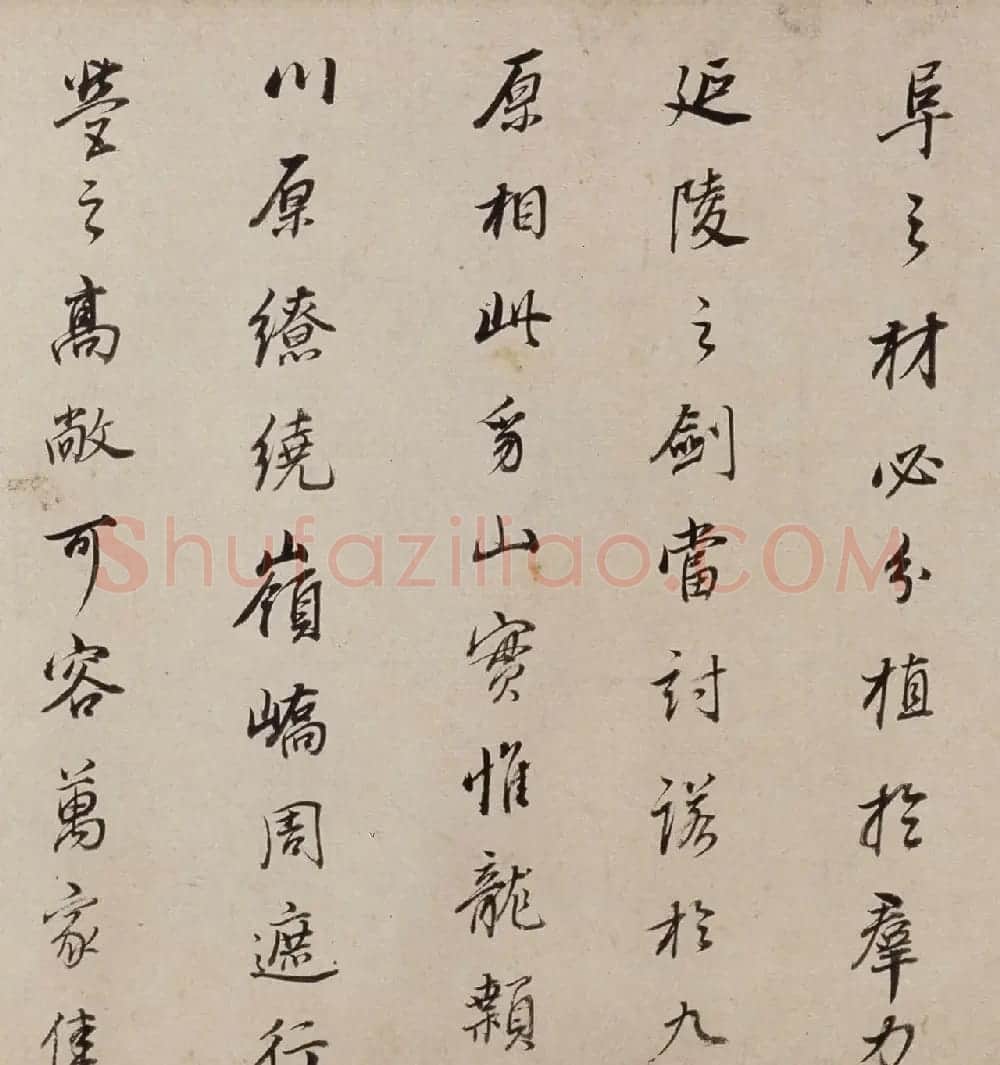 阜之材必分植於羣力
延陵之劍當討諾於九
原相此豸山實惟龍顙
川原繚繞嶺嶠周遮行
塋之高敞可容萬家佳
Shufaziliao.COM